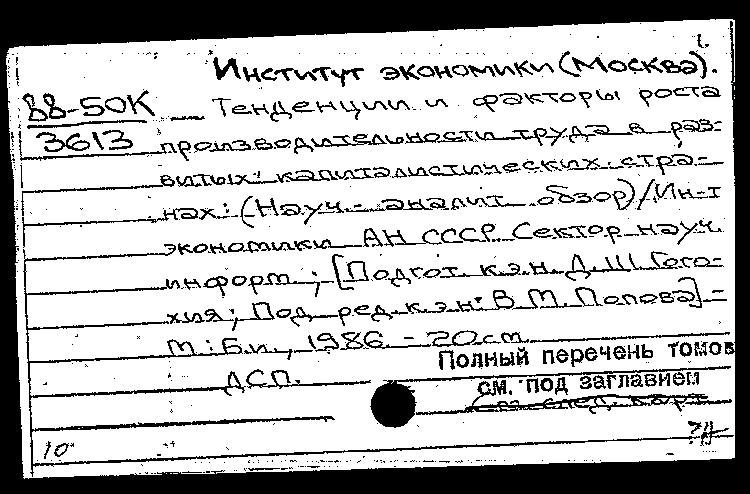 Институт экономики (Москва).
88-50К
3613
Тенденции и факторы роста
производительности труда в раз-
витых капиталистических стра-
нах: (Науч.-аналит. обзор)/Ин-т
экономики АН СССР. Сектор науч.
информ.; [Подгот. к.э.н. Д.Ш. Гого-
хия; Под ред. к.э.н. В.М. Попова] -
М.: Б.и., 1986. - 20 см.
ДСП.
Полный перечень томов
см. под заглавием
См. след. карт
10